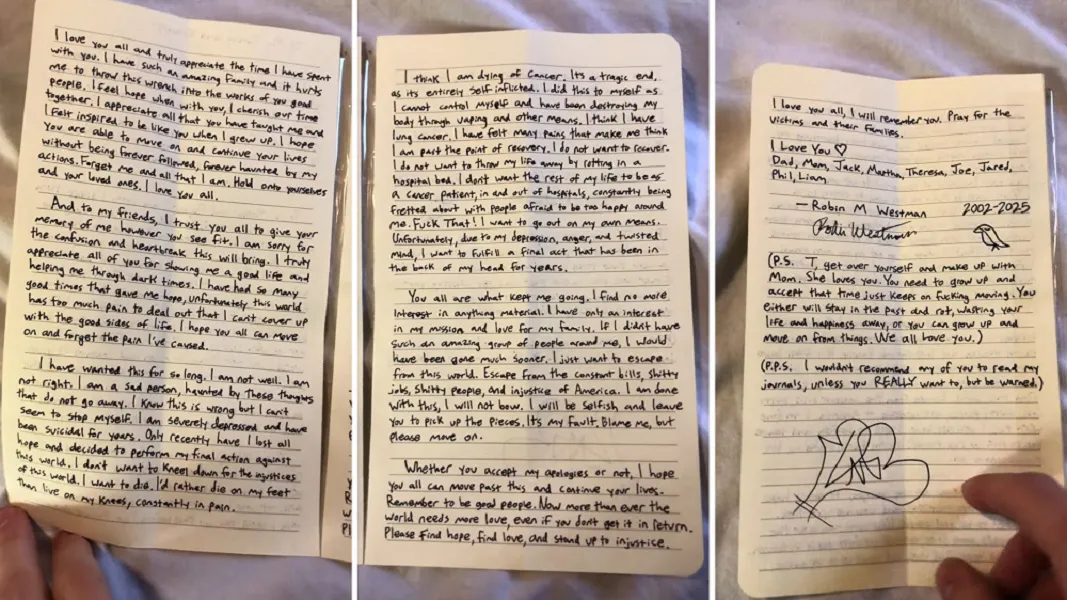 I love you all and truly appreciate the time I have spent
with you. I have such an amazing family and it hurts
me to throw this wrench into the works of you good
people. I feel hope when with you, I cherish our time
together. I appreciate all that you have taught me and
I felt inspired to be like you when I grew up. I hope
you are able to move on and continue your lives
without being forever followed, forever haunted by my
actions. Forget me and all that I am. Hold onto yourselves
and your loved ones. I love you all.
And to my friends, I trust you all to give your
memory of me however you see fit. I am sorry for
the confusion and heartbreak this will bring. I truly
appreciate all of you for showing me a good life and
helping me through dark times. I have had so many
good times that gave me hope, unfortunately this world
has too much pain to deal out that I can't cover up
with the good sides of life. I hope you all can move
on and forget the pain I've caused.
I have wanted this for so long. I am not well. I am
not right. I am a sad person, haunted by these thoughts
that do not go away. I know this is wrong but I can't
seem to stop myself. I am severely depressed and have
been suicidal for years. Only recently have I lost all
hope and decided to perform my final action against
this world. I don't want to kneel down for the injustices
of this world. I want to die. I'd rather die on my feet
than live on my knees, constantly in pain.
I think I am dying of cancer. It's a tragic end,
as its entirely self inflicted. I did this to myself as
I cannot contol myself and have been destroying my
body through vaping and other means. I think I have
lung cancer. I have felt many pains that make me think
I am past the point of recovery. I do not want to recover.
I do not want to throw my life away by rotting in a
hospital bed. I don't want the rest of my life to be as
a cancer patient, in and out of hospitals, constantly being
fretted about with people afraid to be too happy around
me. Fuck That! I want to go out on my own means.
Unfortunately, due to my depression, anger, and twisted
mind, I want to fulfill a final act that has been in
the back of my head for years.
You all are what kept me going. I find no more
interest in anything material. I have only an interest
in my mission and love for my family. If I didn't have
such an amazing group of people around me, I would
have been gone much sooner. I just want to escape
from this world. Escape from the constant bills, shitty
jobs, shitty people, and injustice of America. I am done
with this, I will not bow. I will be selfish and leave
you to pick up the pieces. Its my fault. Blame me, but
please move on.
Whether you accept my apologies or not, I hope
you all can move past this and continue your lives.
Remember to be good people. Now more than ever the
world needs more love, even if you don't get it in return.
Please find hope, find love, and stand up to injustice.
I love you all, I will remember you. Pray for the
victims and their families.
I Love You ♡
Dad, Mom, Jack, Martha, Theresa, Joe, Jared,
Phil, Liam
— Robin M Westman 2002-2025
Robin Westman
(P.S. T, get over yourself and make up with
Mom. She loves you. You need to grow up and
accept that time just keeps on fucking moving. You
either will stay in the past and rot, wasting your
life and happiness away, or you can grow up and
move on from things. We all love you.)
(P.P.S. I wouldn't recommend any of you to read my
journals, unless you REALLY want to, but be warned.)